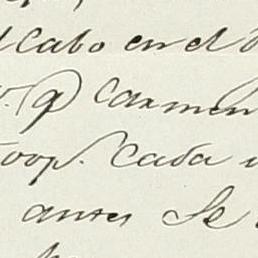 l Cabo en el
q Carmen
oop. Cada
antes Se